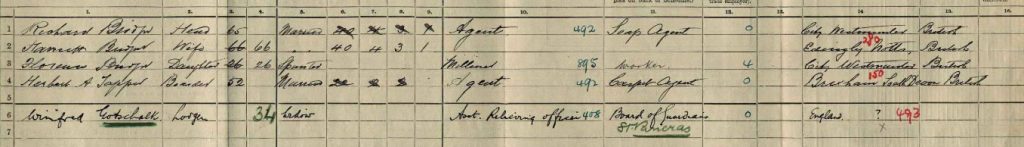 1. 2. 3. 4. 5. 6. 7. 8. 9. 10. 11. 12. 13. 14. 15. 16.
1 Richard Head 65 Married Agent 492 Soap Agent 0 City Westminster British
2 Wife 66 66 40 4 3 1 Notts, British 280
3 Florence Daughter 26 26 Milliner 895 Worker 4 City Westminster British
4 Herbert A Boarder 52 Married Agent 492 Carpet Agent 0 Brixham South Devon British 150
5
6 Winifred Gotschalk Lodger 34 Widow Asst. Relieving officer 408 Board of Guardians 0 England ? 493
7 St Pancras x